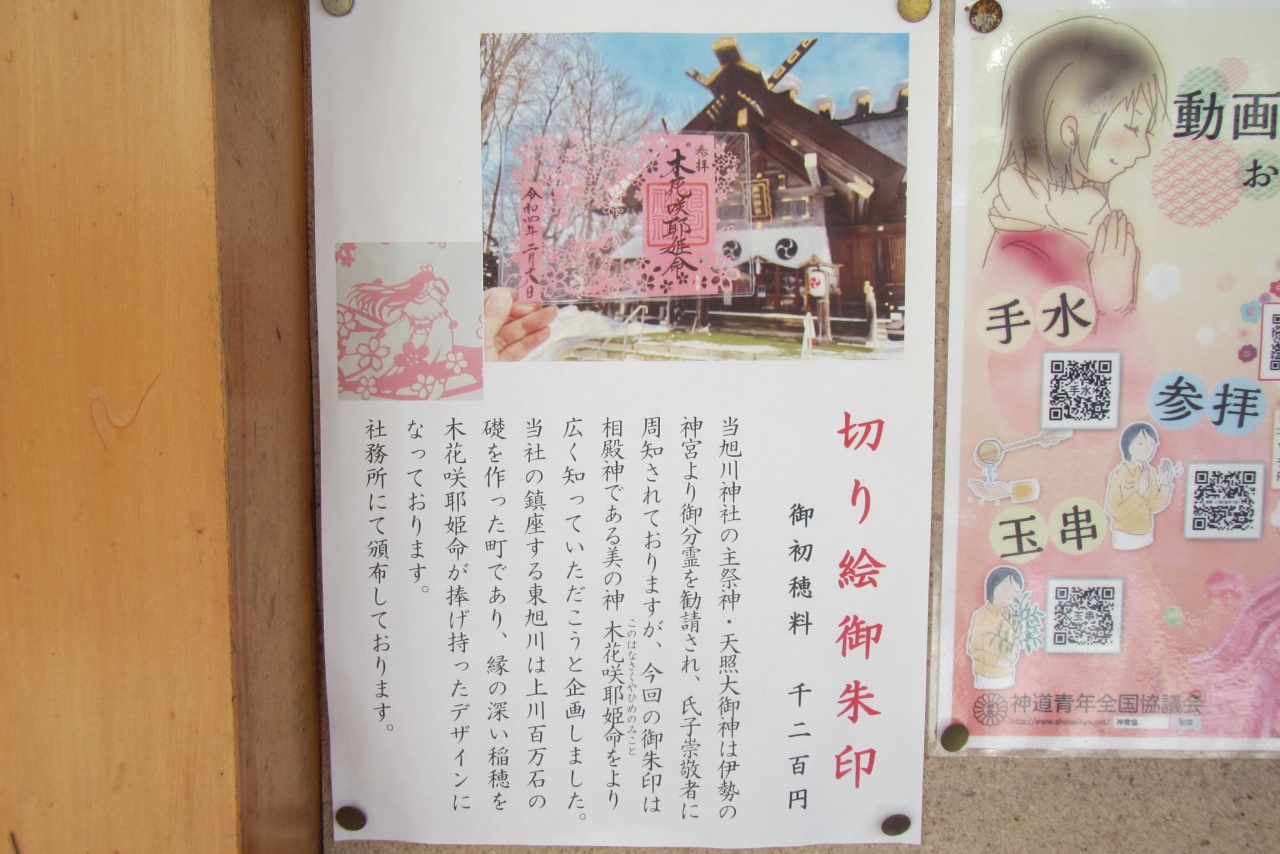 参拝
木花咲耶姫命
令和四年 二月十八日
切り絵御朱印
御初穂料 千二百円
当旭川神社の主祭神・天照大御神は伊勢の
神宮より御分霊を勧請され、氏子崇敬者に
周知されておりますが、今回の御朱印は
相殿神である美の神 木花咲耶姫命をより
このはなさくやひめのみこと
広く知っていただこうと企画しました。
当社の鎮座する東旭川は上川百万石の
礎を作った町であり、縁の深い稲穂を
木花咲耶姫命が捧げ持ったデザインに
なっております。
社務所にて頒布しております。
動画
お
手水
手水
参拝
玉串
玉串
神道青年全国協議会
http://www.shinseikyo.net/
神青協
検索